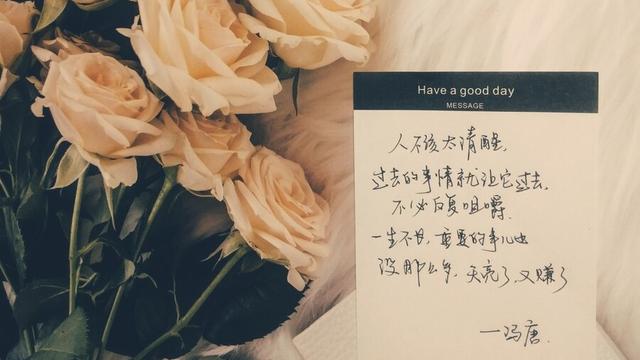 Have a good day
MESSAGE
人不该太清醒,
过去的事情就让它过去,
不必反复咀嚼.
一生不长,重要的事儿也
没那么多,天亮了,又赚了
—冯唐.